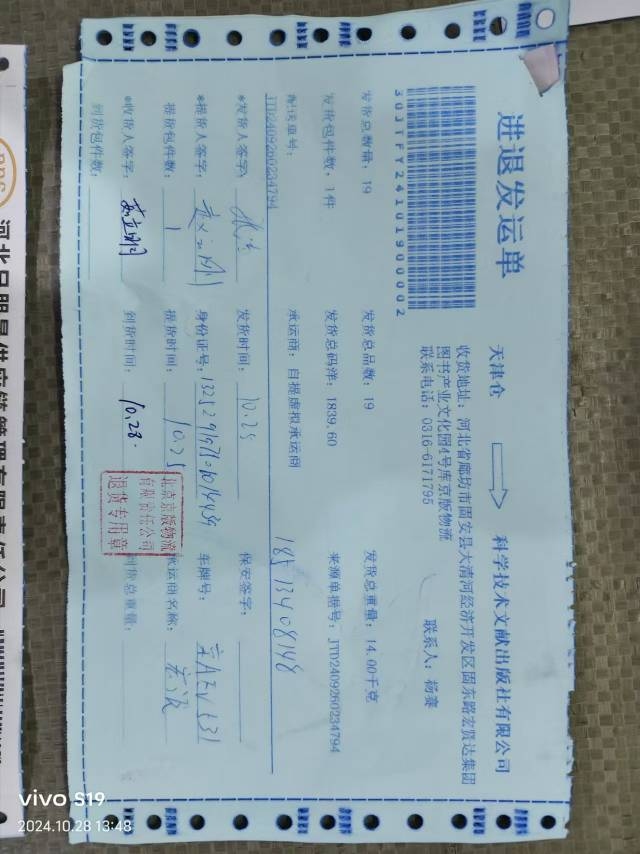 进退发运单
303TFY24101900002
天津仓
科学技术文献出版社有限公司
收货地址：河北省廊坊市固安县大清河经济开发区固东路宏贯达集团
图书产业文化园4号库京版物流
联系电话：0316-6171795
联系人：杨寨
发货总数量：19 发货总品数：19 发货总重量：14.00千克
发货包件数：1件 发货总码洋：1839.60 来源单据号：JTD2409260234794
配送单号： 承运商：自提虚拟承运商
JTD2409260234794 18513408148
*发货人签字： 发货时间：10.25 保安签字：
*提货人签字： 身份证号： 车牌号：
提货包件数：1 提货时间：10.25 承运商名称：
*收货人签字： 到货时间：10.28. 到货总重量：
到货包件数：
北京京版物流
有限责任公司
退货专用章
vivo S19
2024.10.28 13:48